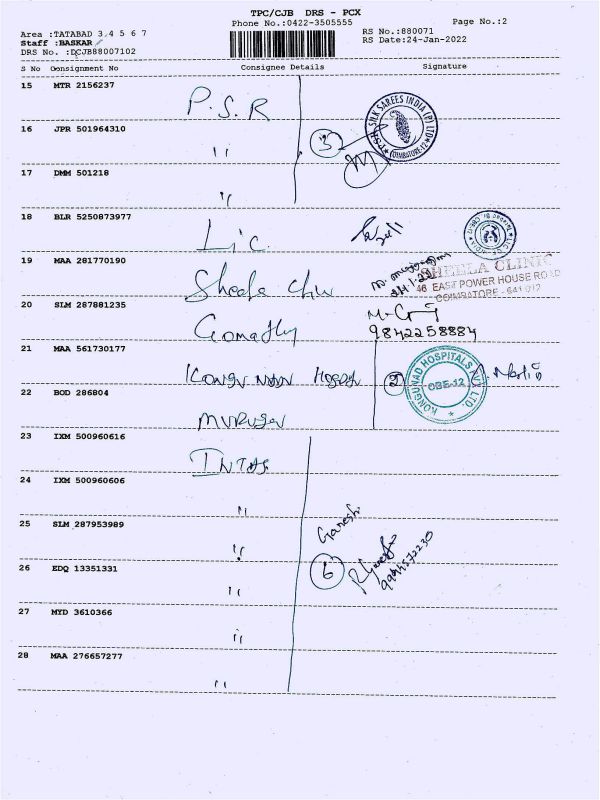 TPC/CJB DRS - PCX
Phone No.:0422-3505555
Page No.:2
Area :TATABAD 3 4 5 6 7
RS No.:880071
Staff :BASKAR
RS Date:24-Jan-2022
DRS No. :DCJB88007102
S No Consignment No Consignee Details Signature
15 MTR 2156237 P.S.R
PSR SILK SAREES INDIA (P) LTD
COIMBATORE-12
16 JPR 501964310 〃
3
17 DMM 501218 〃
18 BLR 5250873977 Lic.
19 MAA 281770190 Sheela
SHEELA CLINIC
46 EAST POWER HOUSE ROAD
COIMBATORE - 641 012
20 SLM 287881235 Gomathy
9842258884
21 MAA 561730177
2
KONGUNAD HOSPITALS PVT LTD.
CBE-12
22 BOD 286804 Murugan
23 IXM 500960616 INTAS
24 IXM 500960606 〃
Ganesh
25 SLM 287953989 〃
26 EDQ 13351331 〃
6
27 MYD 3610366 〃
28 MAA 276657277 〃